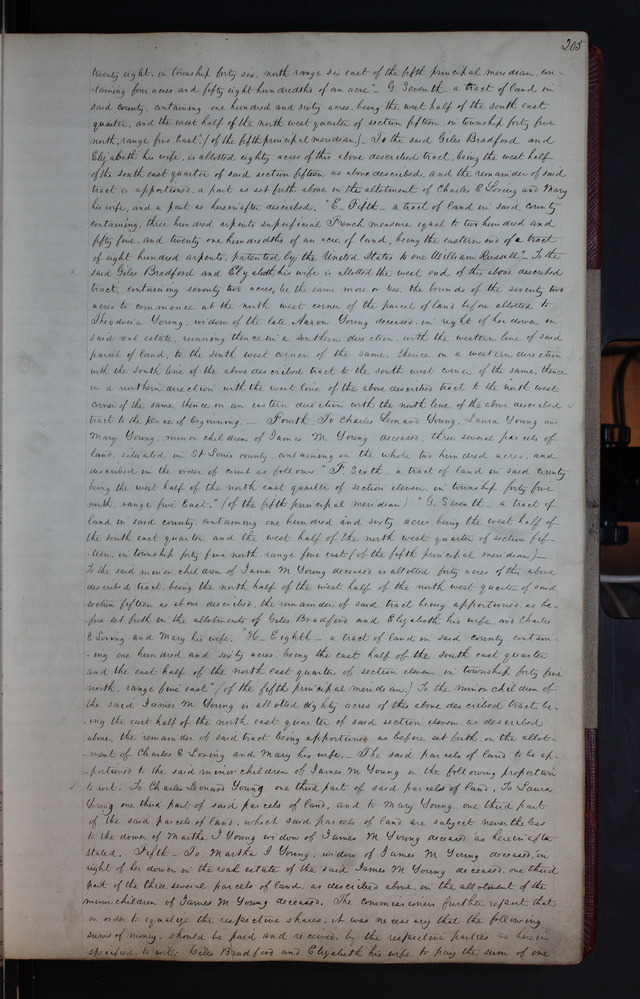 205
twenty eight, in township forty six, north range six east of the fifth principal meridian, con-
taining four acres and fifty eight hundredths of an acre" - G Seventh - a tract of land in
said county, containing one hundred and sixty acres, being the west half of the south east
quarter, and the west half of the north west quarter of section fifteen, in township forty five
north, range five East," (of the fifth principal meridian) - To the said Giles Bradford and
Elizabeth his wife, is allotted eighty acres of this above described tract, being the west half
of the south east quarter of said section fifteen as above described, and the remainder of said
tract is apportioned, a part as set forth above in the allotment of Charles E Loving and Mary
his wife, and a part as hereinafter described. "E - Fifth - a tract of land in said county
containing, three hundred arpents superficial French measure equal to two hundred and
fifty five, and twenty one hundredths of an acre of land, being the eastern end of a tract
of eight hundred arpents, patented by the United States to one William Russell" - To the
said Giles Bradford and Elizabeth his wife is allotted the west end of this above described
tract, containing seventy two acres, be the same more or less, the bounds of the seventy two
acres to commence at the north west corner of the parcel of land before allotted to
Theodosia Young, widow of the late Aaron Young deceased, in right of her dower, in
said real estate, running thence in a southern direction, with the western line of said
parcel of land, to the south west corner of the same, thence in a western direction
with the south line of the above described tract to the south west corner of the same, thence
in a northern direction with the west line of the above described tract to the north west
corner of the same, thence in an eastern direction with the north line of the above described
tract to the place of beginning. - Fourth. To Charles Leonard Young, Laura Young and
Mary Young, minor children of James M Young deceased, three several parcels of
land, situated in St Louis county, containing in the whole two hundred acres, and
described in the order of court as follows "F. Sixth - a tract of land in said county
being the west half of the north east quarter of section eleven, in township forty five
north, range five East," (of the fifth principal meridian) "G. Seventh - a tract of
land in said county, containing one hundred and sixty acres, being the west half of
the south east quarter and the west half of the north west quarter of section fif-
teen, in township forty five north range five east (of the fifth principal meridian) -
To the said minor children of James M Young deceased is allotted forty acres of this above
described tract, being the north half of the west half of the north west quarter of said
section fifteen as above described, the remainder of said tract being apportioned, as be-
fore set forth in the allotments of Giles Bradford and Elizabeth his wife, and Charles
E Loving and Mary his wife. "H - Eighth - a tract of land in said county, contain-
ing one hundred and sixty acres, being the east half of the south east quarter
and the east half of the north east quarter of section eleven in township forty five
north, range five east" (of the fifth principal meridian.) To the minor children of
the said James M Young is allotted eighty acres of this above described tract, be-
ing the east half of the north east quarter of said section eleven as described
above, the remainder of said tract being apportioned as before set forth in the allot-
ment of Charles E Loving and Mary his wife. - The said parcels of land to be ap-
portioned to the said minor children of James M Young in the following proportion
to wit: To Charles Leonard Young one third part of said parcels of land, To Laura
Young one third part of said parcels of land, and to Mary Young, one third part
of the said parcels of land, which said parcels of land are subject nevertheless
to the dower of Martha J Young widow of James M Young deceased as herein after
stated. Fifth - To Martha J Young, widow of James M Young deceased, in
right of her dower in the real estate of the said James M Young deceased, one third
part of the three several parcels of land, as described above, in the allotment of the
minor children of James M Young deceased. The commissioners further report that
in order to equalize the respective shares, it was necessary that the following
sums of money, should be paid and received, by the respective parties as herein
specified, to wit: Giles Bradford and Elizabeth his wife to pay the sum of one